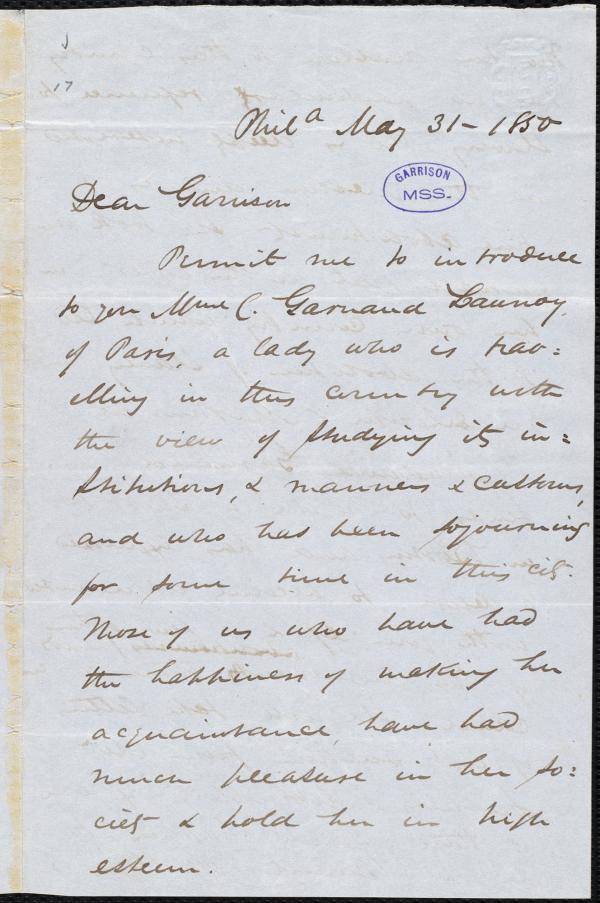 17
Phil a May 31 - 1850
GARRISON
MSS.
Dear Garrison
Permit me to introduce
to you Mme C. Garnaud Launay,
of Paris, a lady who is trav=
elling in this country with
the view of studying its in=
stitutions, & manners & customs,
and who has been sojourning
for some time in this city.
Those of us who have had
the happiness of making her
acquaintance have had
much pleasure in her so=
ciety & hold her in high
esteem.